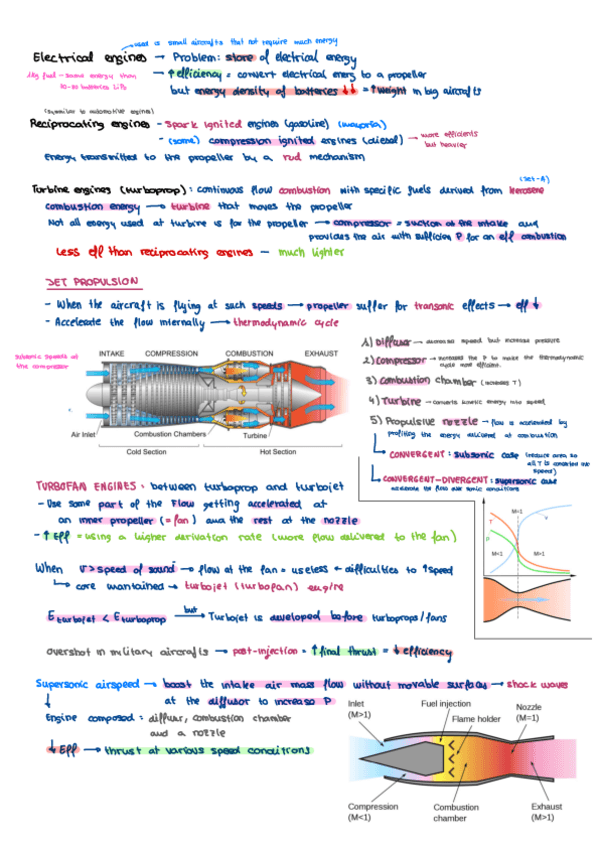 used is small aircrafts that not require much energy
Electrical engines → Problem: store of electrical energy
1kg fuel - same energy than
→ ↑ efficiency = convert electrical energ to a propeller
batteries LiPo
but energy density of batteries ↓↓ = ↑ weight in big aircrafts
(symimilar to automotive engines)
Reciprocating engines - Spark ignited engines (gasoline) (mayoria)
- (some) compression ignited engines (diesel) → more efficients
but heavier
Energy transmitted to the propeller by a rod mechanism
(Jet-A)
Turbine engines (turboprop): continuous flow combustion with specific fuels derived from kerosene
combustion energy → turbine that moves the propeller
Not all energy used at turbine is for the propeller → compressor = suction at the intake and
provides the air with sufficien P for an eff combustion
Less eff than reciprocating engines - much lighter
JET PROPULSION
- When the aircraft is flying at such speeds → propeller suffer for transonic effects → eff ↓
- Accelerate the flow internally → thermodynamic cycle
subsonic speeds at
the compressor
INTAKE COMPRESSION COMBUSTION EXHAUST
Air Inlet Combustion Chambers Turbine
Cold Section Hot Section
1) Diffusor → decrease speed but increase pressure
2) Compressor → increases the P to make the thermodynamic
cycle more efficient.
3) Combustion chamber (increases T)
4) Turbine → converts kinetic energy into speed
5) Propulsive nozzle → flow is accelerated by
profiting the energy delivered at combustion
CONVERGENT: subsonic case
speed)
CONVERGENT-DIVERGENT: supersonic case
accelerate the flow over sonic conditions
M=1
T
V
P
M<1 M>1
TURBOFAN ENGINES: between turboprop and turbojet
- Use some part of the flow getting accelerated at
an inner propeller (= fan) and the rest at the nozzle
- ↑ Eff = using a higher derivation rate (more flow delivered to the fan)
When v > speed of sound → flow at the fan = useless + difficulties to ↑ speed
core mantained → turbojet (turbofan) engine
E turbojet < E turboprop but → Turbojet is developed before turboprops/fans
overshot in military aircrafts → post-injection = ↑ final thrust = ↓ efficiency
Supersonic airspeed → boost the intake air mass flow without movable surfaces → shock waves
at the diffusor to increase P
Engine composed: diffusor, combustion chamber
and a nozzle
↓ Eff → thrust at various speed conditions
Inlet
(M>1)
Fuel injection
Flame holder
Nozzle
(M=1)
Compression
(M<1)
Combustion
chamber
Exhaust
(M>1)